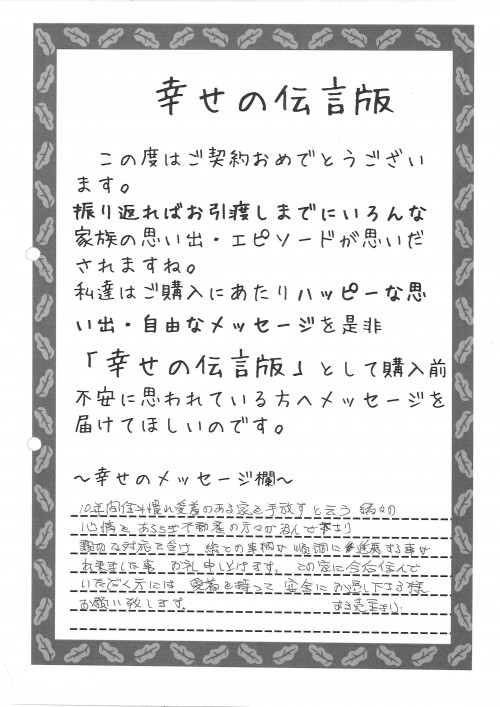 幸せの伝言版
この度はご契約おめでとうござい
ます。
振り返ればお引渡しまでにいろんな
家族の思い出・エピソードが思いだ
されますね。
私達はご購入にあたりハッピーな思
い出・自由なメッセージを是非
「幸せの伝言版」として購入前
不安に思われている方へメッセージを
届けてほしいのです。
～幸せのメッセージ欄～
10年間住み慣れ愛着のある家を手放すと云う
心情を 不動産の方々が
親切な対応を受け 総ての事柄が順調に進展する事が
出来ました事 お礼申し上げます。この家に今后住んで
いただく方には 愛着を持って 安全にお過し下さる様
お願い致します。